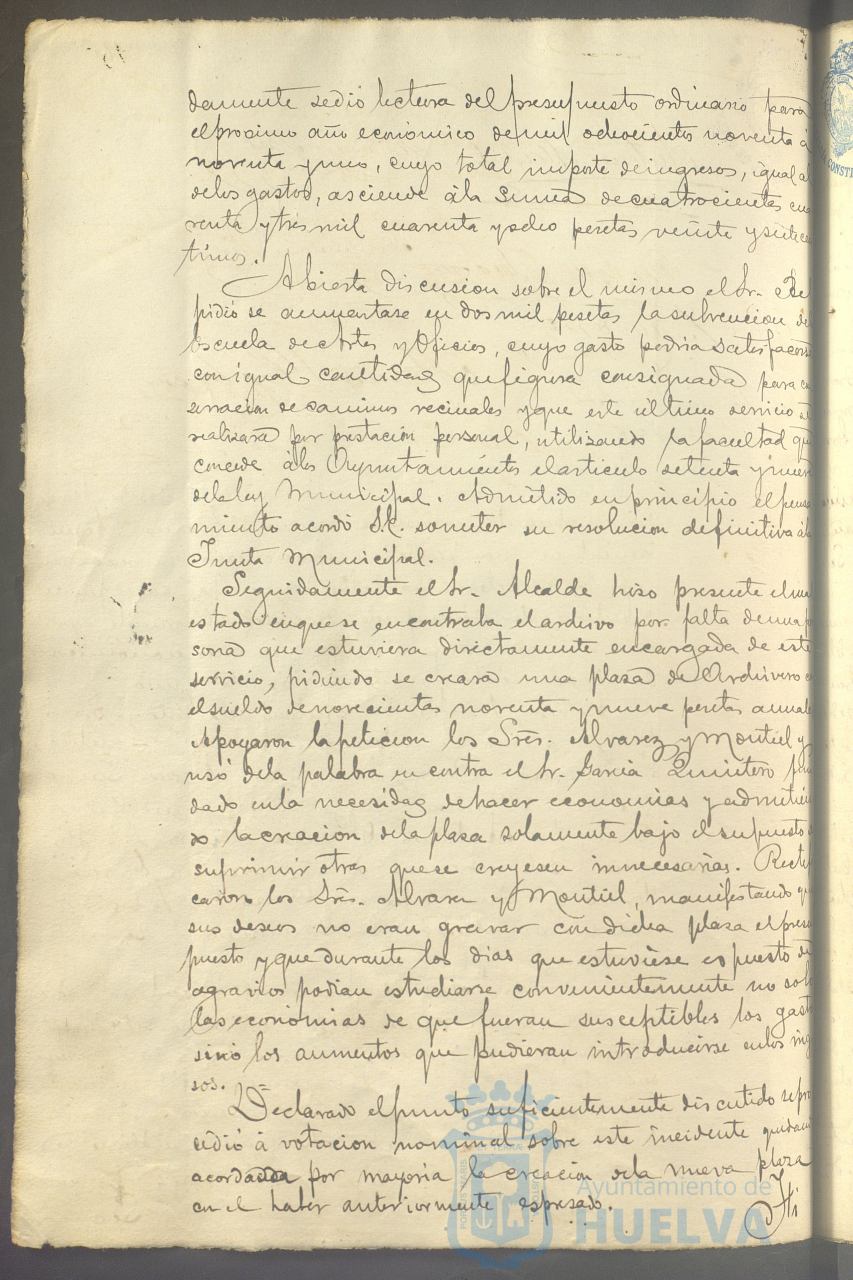 damente se dió lectura del presupuesto ordinario para
el procsimo año economico de mil ochocientos noventa á
noventa y uno, cuyo total importe de ingresos, igual al
de los gastos, asciende á la suma de cuatrocientas cua
renta y tres mil cuarenta y ocho pesetas veinte y siete ce
timos.
Abierta discusion sobre el mismo el Sr.
pidió se aumentase en dos mil pesetas la subvencion de
Escuela de Artes y Oficios, cuyo gasto podria satisfacerse
con igual cantidad que figura consignada para co
servacion de caminos vecinales y que este último servicio se
realizara por prestacion personal, utilizando la facultad que
concede á los Ayuntamientos el articulo setenta y nueve
de la ley Municipal. Admitido en principio el pensa
miento acordó S.E. someter su resolucion definitiva á la
Junta Municipal.
Seguidamente el Sr. Alcalde hizo presente el mal
estado en que se encontraba el archivo por falta de una p
sona que estuviera directamente encargada de este
servicio, pidiendo se creara una plaza de Archivero c
el sueldo de novecientas noventa y nueve pesetas anuale
Apoyaron la peticion los Sres. Alvarez y Montiel y
usó de la palabra en contra el Sr. Garcia Quintero fun
dado en la necesidad de hacer economias y admitien
do la creacion de la plaza solamente bajo el supuesto d
suprimir otras que se creyesen innecesarias. Rectifi
caron los Sres. Alvarez y Montiel, manifestando qu
sus deseos no eran gravar con dicha plaza el presu
puesto y que durante los dias que estuviese espuesto de
agravios podian estudiarse convenientemente no solo
las economias de que fueran susceptibles los gast
sinó los aumentos que pudieran introducirse en los ing
sos.
Declarado el punto suficientemente discutido se pro
cedió á votacion nominal sobre este incidente quedan
acordada por mayoria la creacion de la nueva plaza
en el haber anteriormente espresado.
Ayuntamiento de
HUELVA